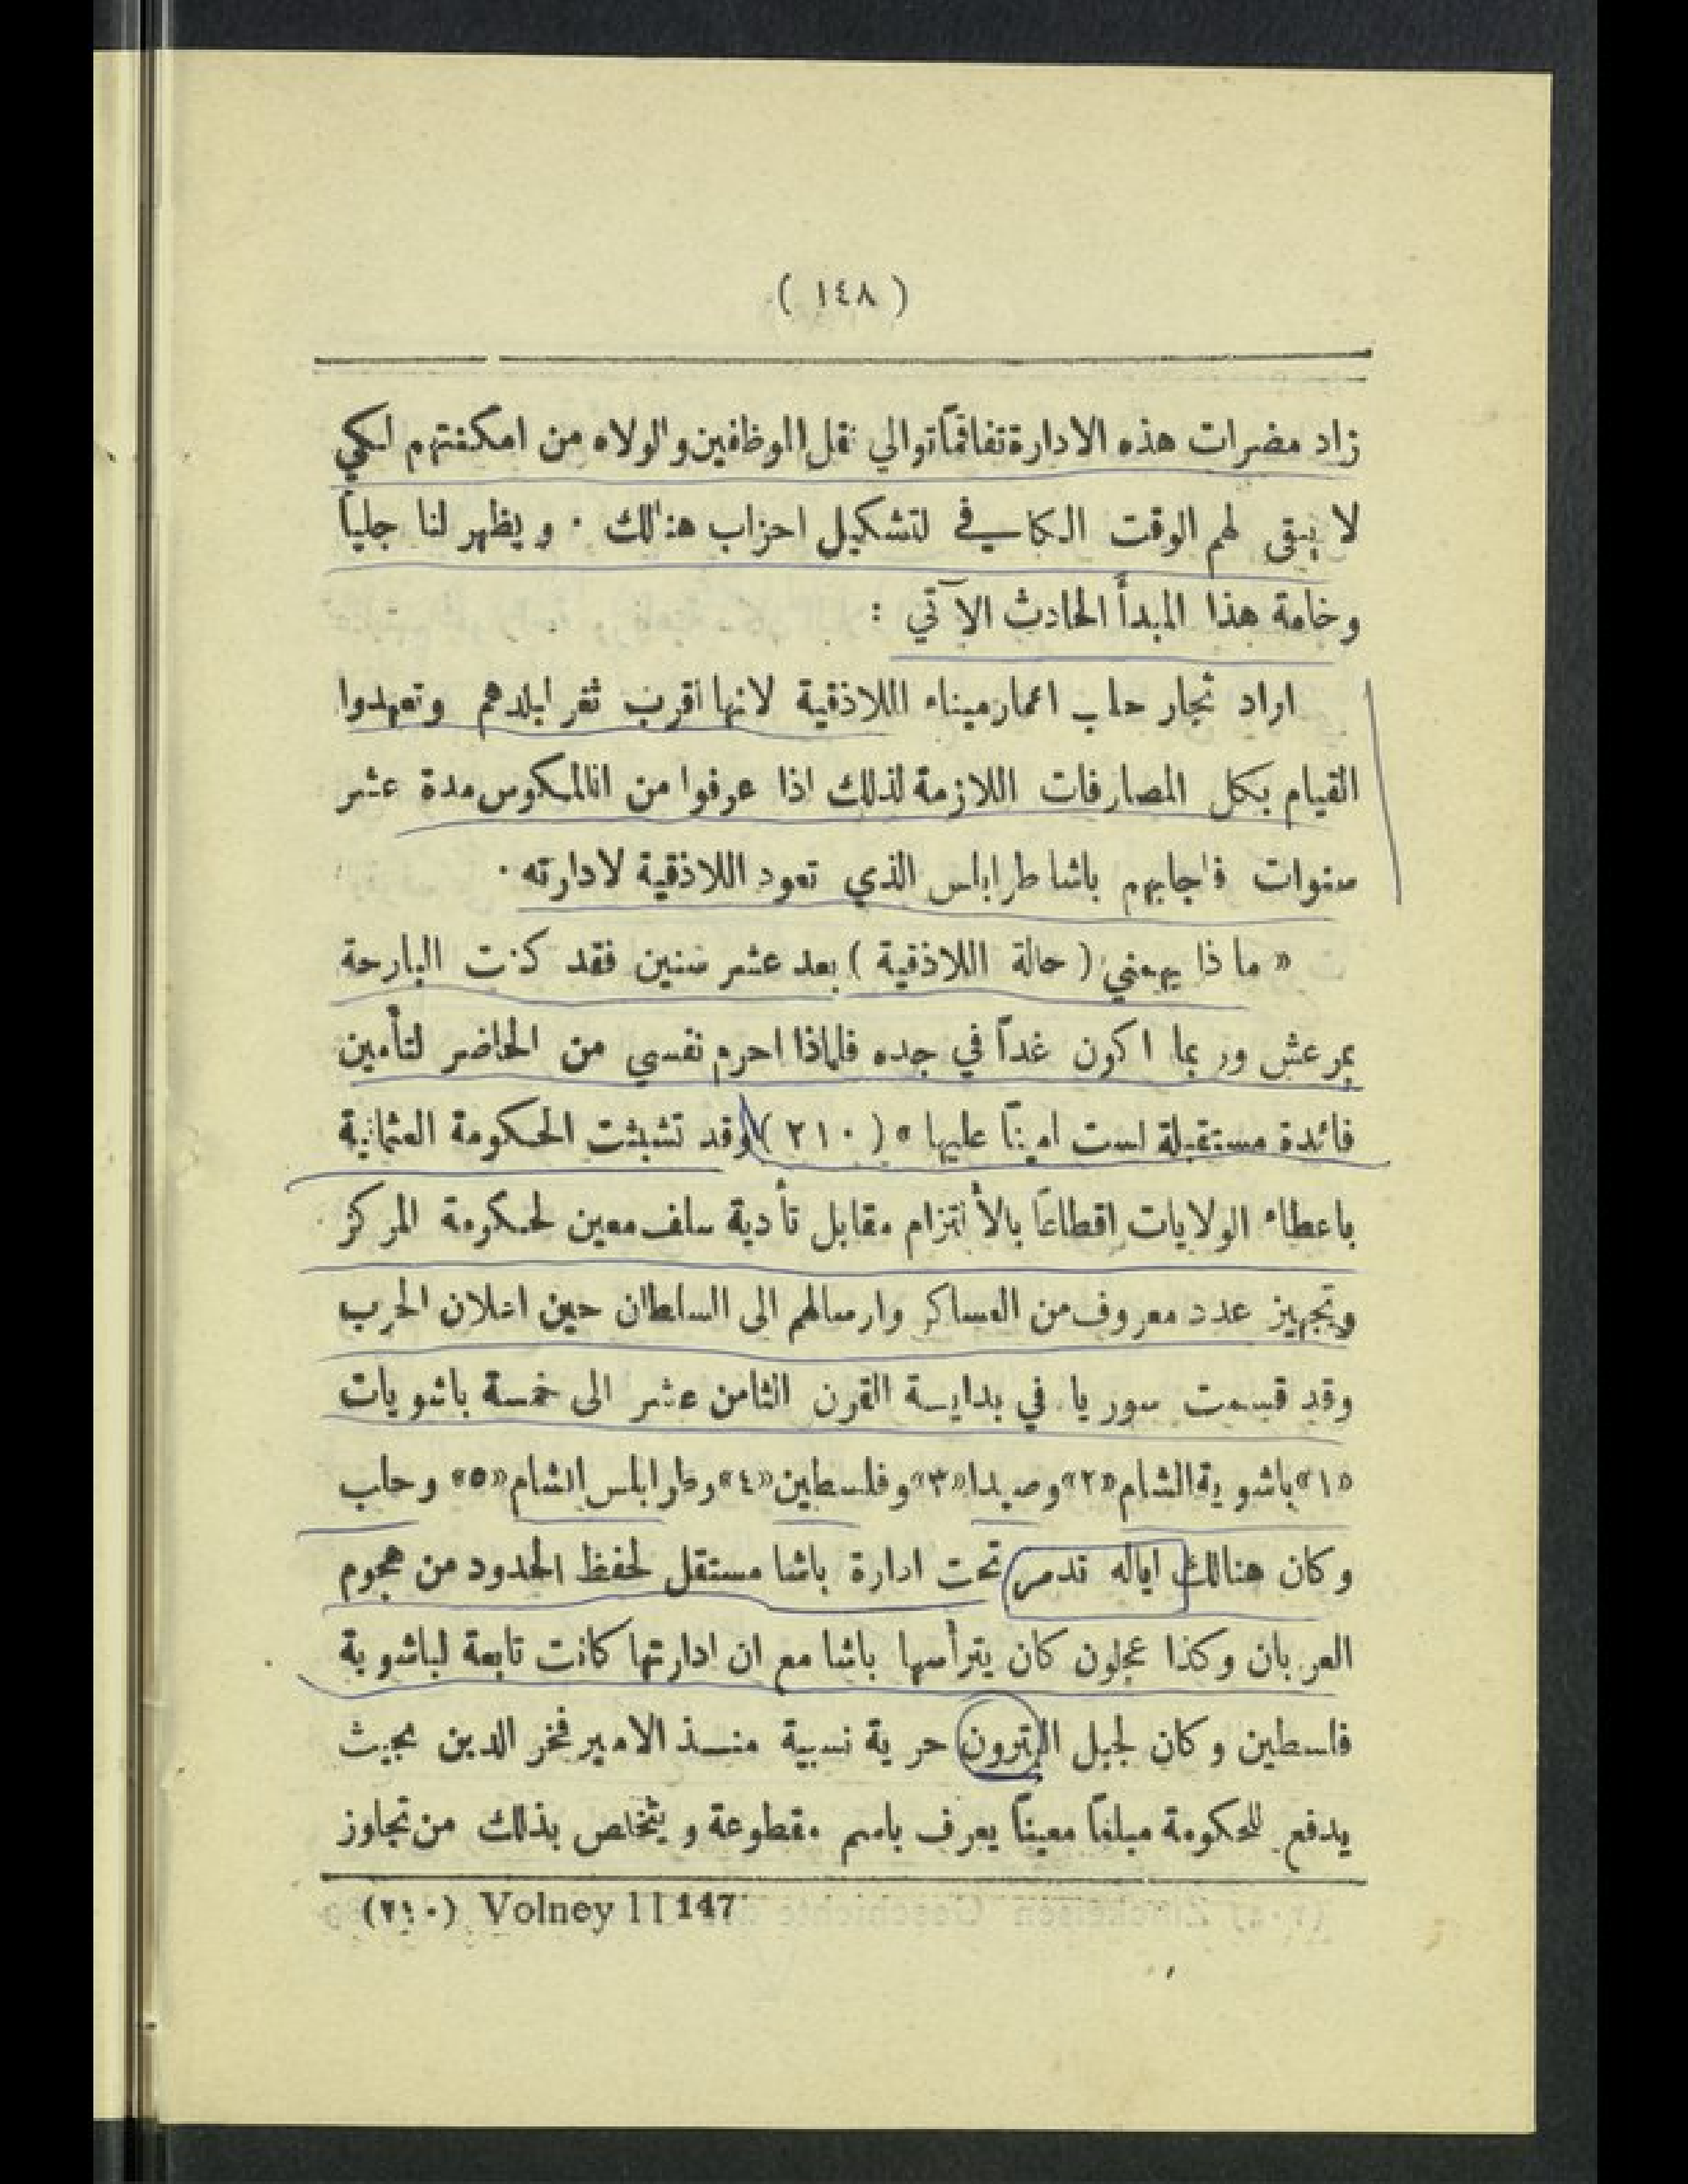 ( ١٤٨ )
زاد مضرات هذه الادارة تفاقمًا توالي نقل الموظفين والولاه من امكنتهم لكي
لا يبقى لهم الوقت الكافي لتشكيل احزاب هنالك · ويظهر لنا جليًا
وخامة هذا المبدأ الحادث الآتي :
اراد تجار حلب اعمار ميناء اللاذقية لانها اقرب ثغر لبلدهم وتعهدوا
القيام بكل المصارفات اللازمة لذلك اذا عرفوا من المكوس مدة عشر
سنوات فاجابهم باشا طرابلس الذي تعود اللاذقية لادارته ·
« ماذا يهمني ( حالة اللاذقية ) بعد عشر سنين فقد كنت البارحة
بمرعش وربما اكون غدًا في جده فلماذا احرم نفسي من الحاضر لتأمين
فائدة مستقبلة لست امينًا عليها » ( ٢١٠ ) وقد تشبثت الحكومة العثمانية
باعطاء الولايات اقطاعًا بالألتزام مقابل تأدية سلف معين لحكومة المركز
وتجهيز عدد معروف من العساكر وارسالهم الى السلطان حين اعلان الحرب
وقد قسمت سوريا في بدايسة القرن الثامن عشر الى خمسة باشويات
«١» باشوية الشام «٢» وصيدا «٣» وفلسطين «٤» وطرابلس الشام «٥» وحلب
وكان هنالك اياله تدمر تحت ادارة باشا مستقل لحفظ الحدود من هجوم
العربان وكذا عجلون كان يترأسها باشا مع ان ادارتها كانت تابعة لباشوية
فلسطين وكان لجبل البترون حرية نسبية منذ الامير فخر الدين بحيث
يدفع للحكومة مبلغًا معينًا يعرف باسم مقطوعة ويتخلص بذلك من تجاوز
(٢١٠) Volney II 147